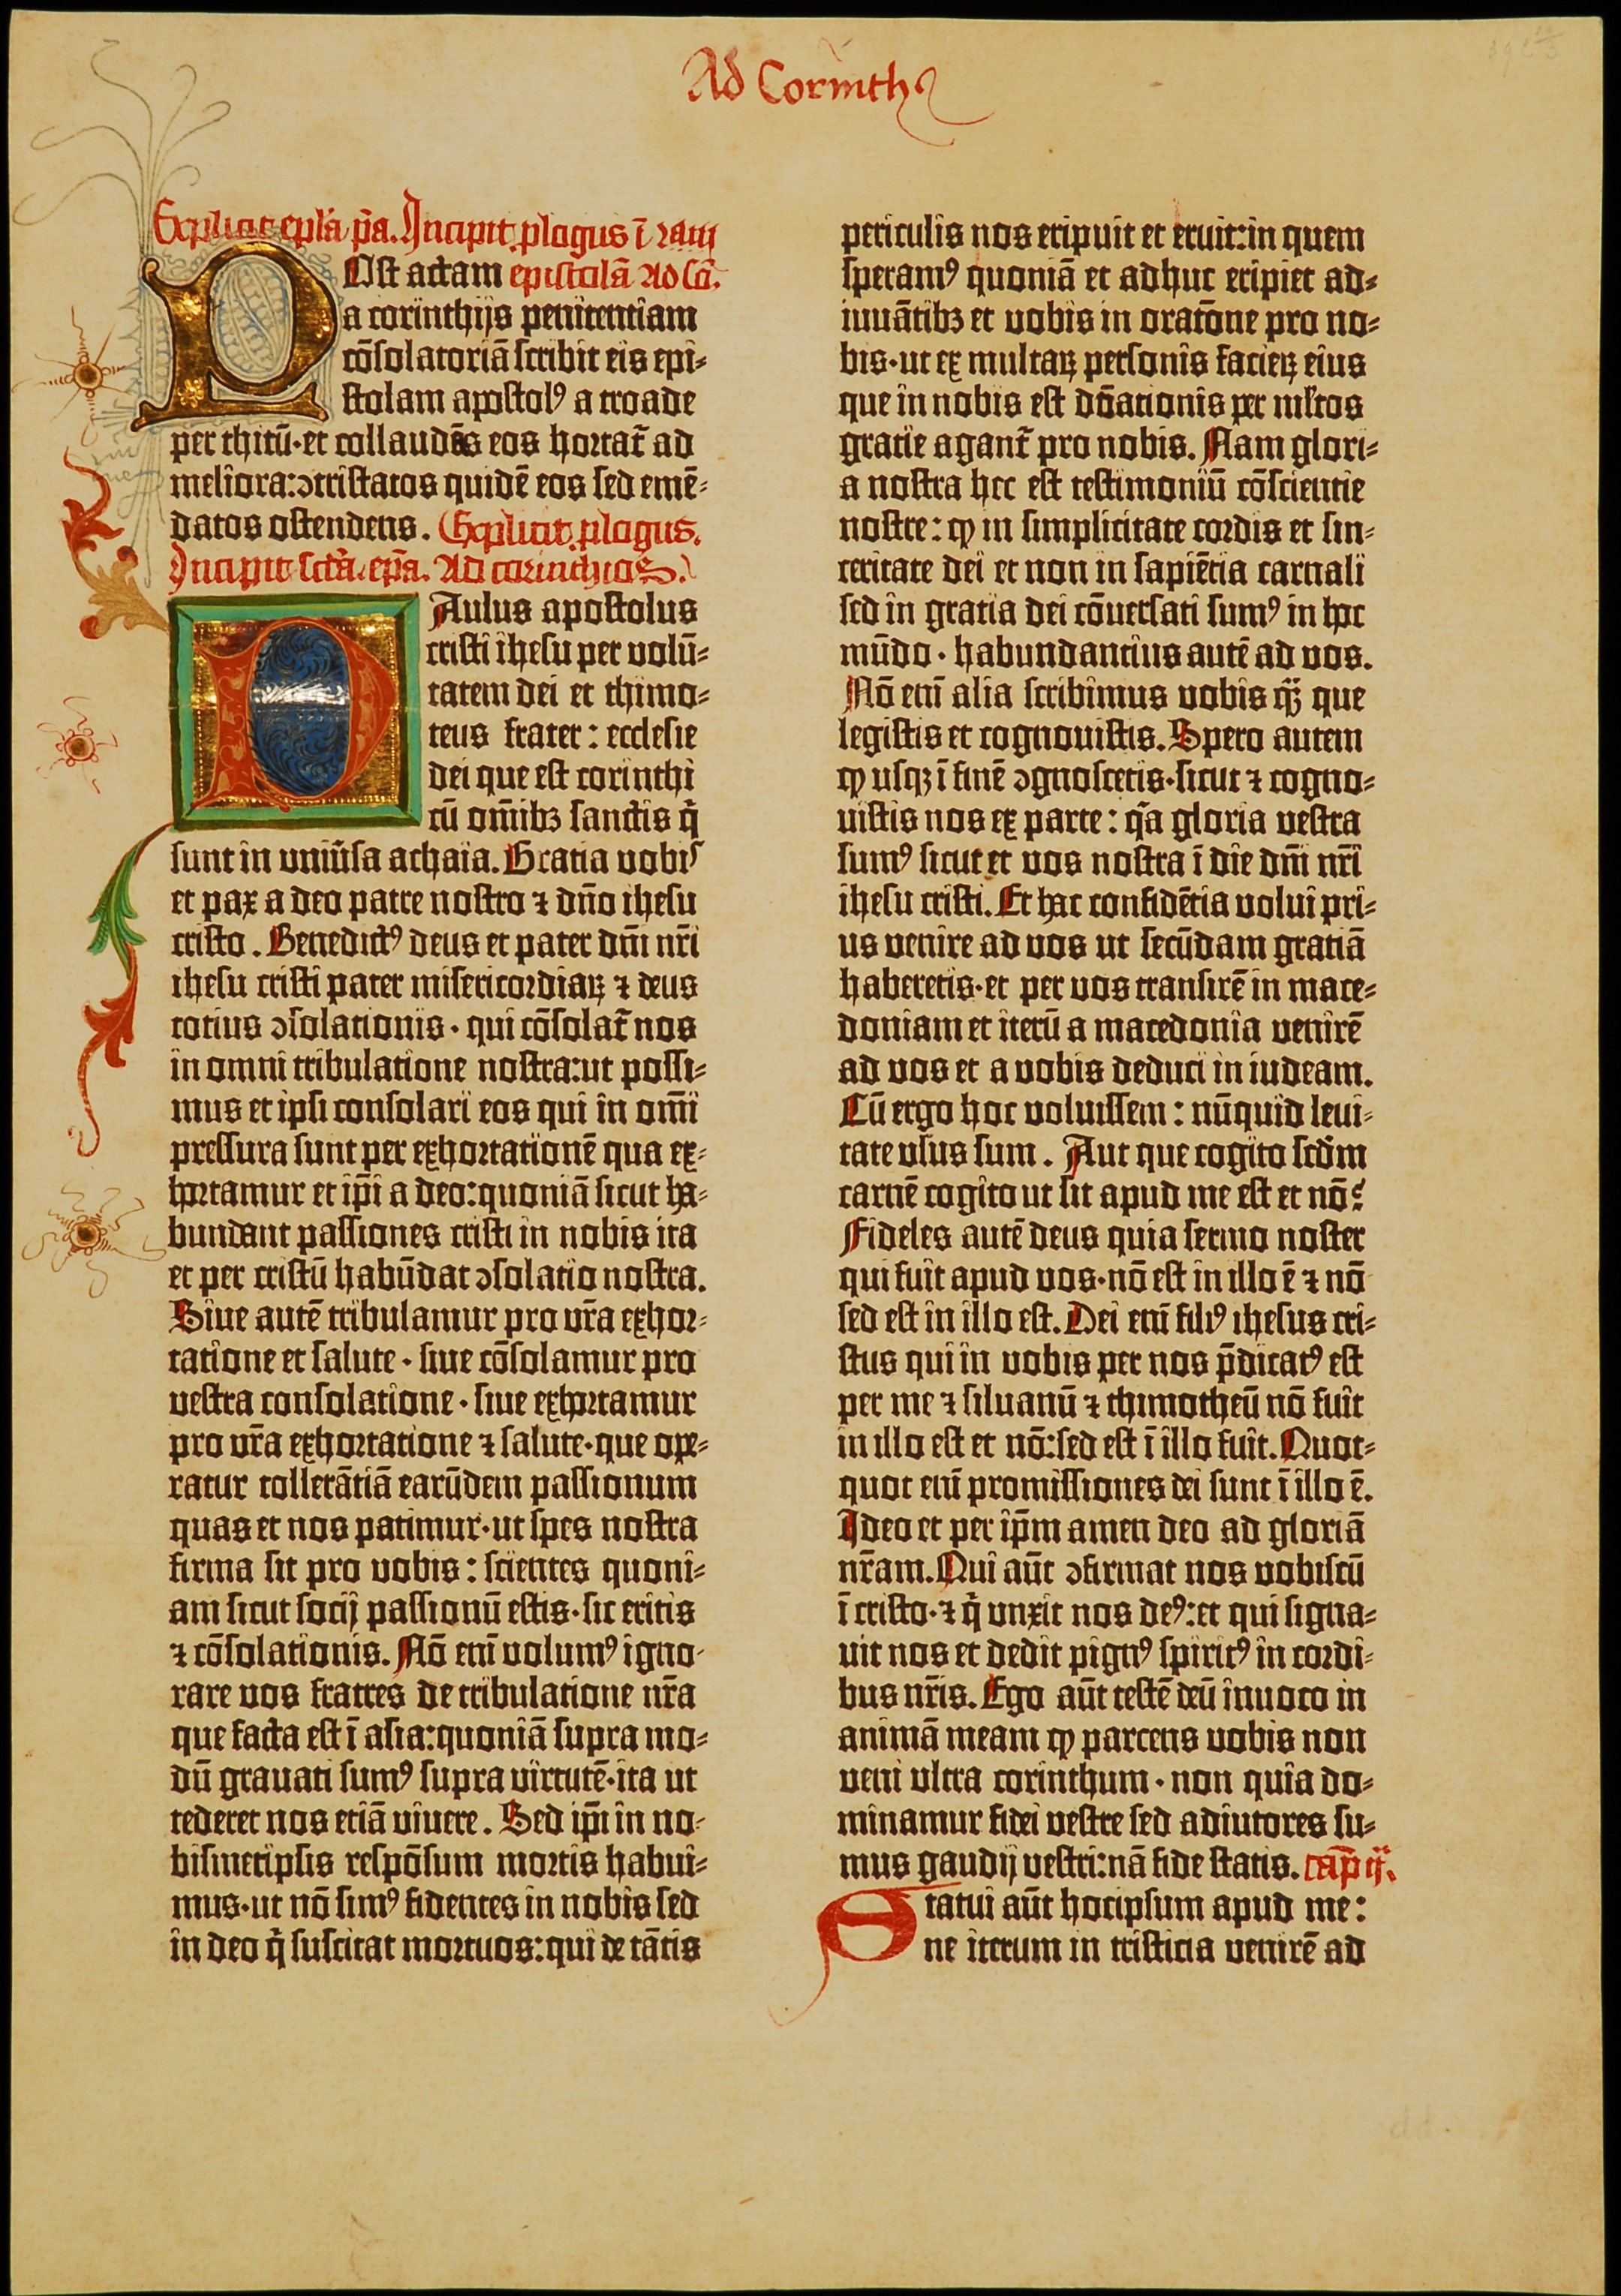 Ad Corinth
Explicit epla pa. Incipit plogus ī
Ost actam epistolā Ad
a corinthijs penitentiam
cōsolatoriā scribit eis epi-
stolam apostolꝰ a troade
per thitū·et collaudās eos hortat̄ ad
meliora:ↄtristatos quidē eos sed emē-
datos ostendens. Explicit plogus.
Incipit scd̄a ep̄a. Ad corinthios.
PAulus apostolus
cristi ihesu per volū-
tatem dei et thimo-
teus frater: ecclesie
dei que est corinthi
cū om̄ibꝫ sanctis q̄
sunt in uniūsa achaia. Gratia vobis
et pax a deo patre nostro ⁊ dn̄o ihesu
cristo. Benedictꝰ deus et pater dn̄i nr̄i
ihesu cristi pater misericordiaꝝ ⁊ deus
totius ↄsolationis· qui cōsolat̄ nos
in omni tribulatione nostra:ut possi-
mus et ipsi consolari eos qui in om̄i
pressura sunt per exhortationē qua ex-
hortamur et ip̄i a deo:quoniā sicut ha-
bundant passiones cristi in nobis ita
et per cristū habūdat ↄsolatio nostra.
Sive autē tribulamur pro vr̄a exhor-
tatione et salute· sive cōsolamur pro
vestra consolatione· sive exhortamur
pro vr̄a exhortatione ⁊ salute·que ope-
ratur tollerātiā earūdem passionum
quas et nos patimur·ut spes nostra
firma sit pro vobis: scientes quoni-
am sicut socij passionū estis·sic eritis
⁊ cōsolationis. Nō enī volumꝰ igno-
rare vos fratres de tribulatione nr̄a
que facta est ī asia:quoniā supra mo-
dū gravati sumꝰ supra virtutē·ita ut
tederet nos etiā vivere. Sed ip̄i in no-
bismetipsis respōsum mortis habui-
mus·ut nō simꝰ fidentes in nobis sed
in deo q̄ suscitat mortuos:qui de tātis
periculis nos eripuit et eruit:in quem
speramꝰ quoniā et adhuc eripiet ad-
iuvātibꝫ et vobis in orat̄one pro no-
bis·ut ex multaꝝ personis facieꝝ eius
que in nobis est dōationis per ml̄tos
gratie agant̄ pro nobis. Nam glori-
a nostra hec est testimoniū cōscientie
nostre: ꝙ in simplicitate cordis et sin-
ceritate dei et non in sapiētia carnali
sed in gratia dei cōversati sumꝰ in hoc
mūdo· habundantius autē ad vos.
Nō enī alia scribimus vobis q̄ꝫ que
legistis et cognovistis. Spero autem
ꝙ usqꝫ ī finē ↄgnoscetis·sicut ⁊ cogno-
vistis nos ex parte: q̄a gloria vestra
sumꝰ sicut et vos nostra ī die dn̄i nr̄i
ihesu cristi. Et hac confidētia volui pri-
us venire ad vos ut secūdam gratiā
haberetis·et per vos transirē in mace-
doniam et iterū a macedonia venirē
ad vos et a vobis deduci in iudeam.
Cū ergo hoc voluissem: nūquid levi-
tate usus sum. Aut que cogito scd̄m
carnē cogito ut sit apud me est et nō?
Fideles autē deus quia sermo noster
qui fuit apud vos·nō est in illo ē ⁊ nō
sed est in illo est. Dei enī filiꝰ ihesus cri-
stus qui in vobis per nos p̄dicatꝰ est
per me ⁊ silvanū ⁊ thimotheū nō fuit
in illo est et nō:sed est ī illo fuit. Quot-
quot enī promissiones dei sunt ī illo ē.
Ideo et per ip̄m amen deo ad gloriā
nr̄am. Qui aūt ↄfirmat nos vobiscū
ī cristo·⁊ q̄ unxit nos deꝰ:et qui signa-
vit nos et dedit pignꝰ spiritꝰ in cordi-
bus nr̄is. Ego aūt testē deū invoco in
animā meam ꝙ parcens vobis non
veni ultra corinthum· non quia do-
minamur fidei vestre sed adiutores su-
mus gaudij vestri:nā fide statis. cap̄
Statui aūt hocipsum apud me:
ne iterum in tristicia venirē ad